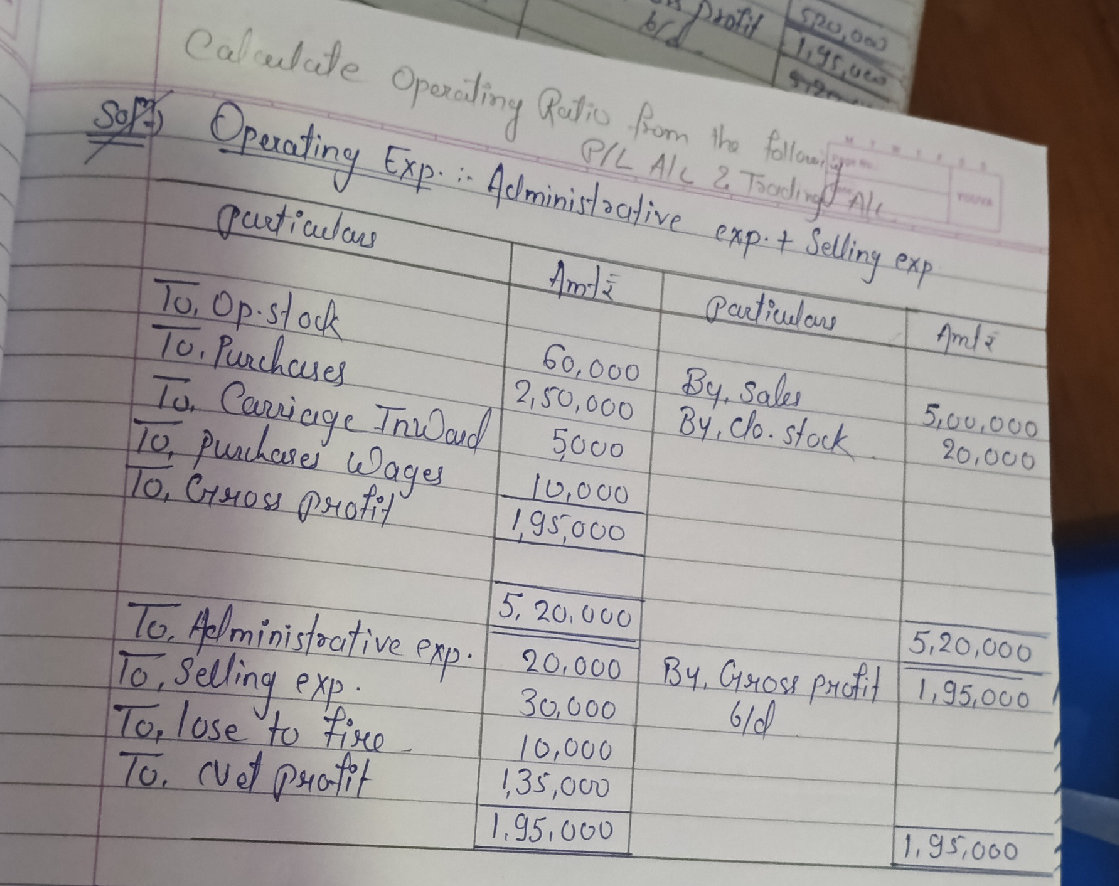 profit 520,000
b/d 1,95,000
Calculate Operating Ratio from the following
P/L A/c & Trading A/c
Solⁿ→ Operating Exp. :- Administrative exp. + Selling exp
Particulars Amt₹ Particulars Amt₹
To, Op. stock 60,000 By, Sales 5,00,000
To, Purchases 2,50,000 By, Clo. stock 20,000
To, Carriage InWard 5000
To, Purchases Wages 10,000
To, Gross profit 1,95,000
5,20,000 5,20,000
To, Administrative exp. 20,000 By, Gross profit 1,95,000
To, Selling exp. 30,000 b/d
To, lose to fire 10,000
To, Net profit 1,35,000
1,95,000 1,95,000